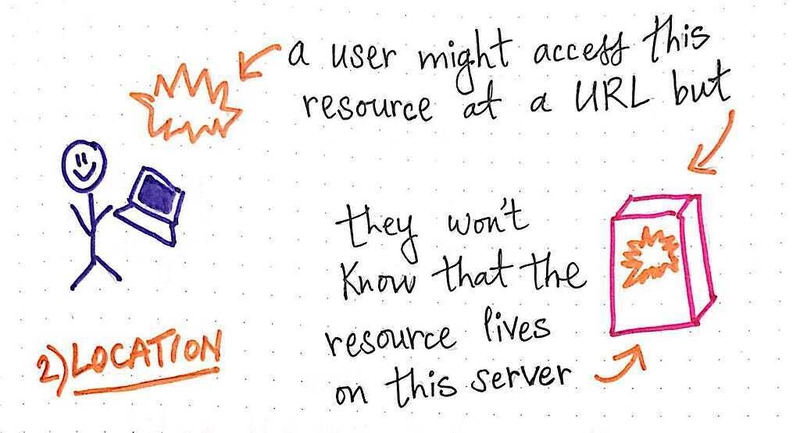 a user might access this
resource at a URL but
they won't
Know that the
resource lives
on this server
2) LOCATION